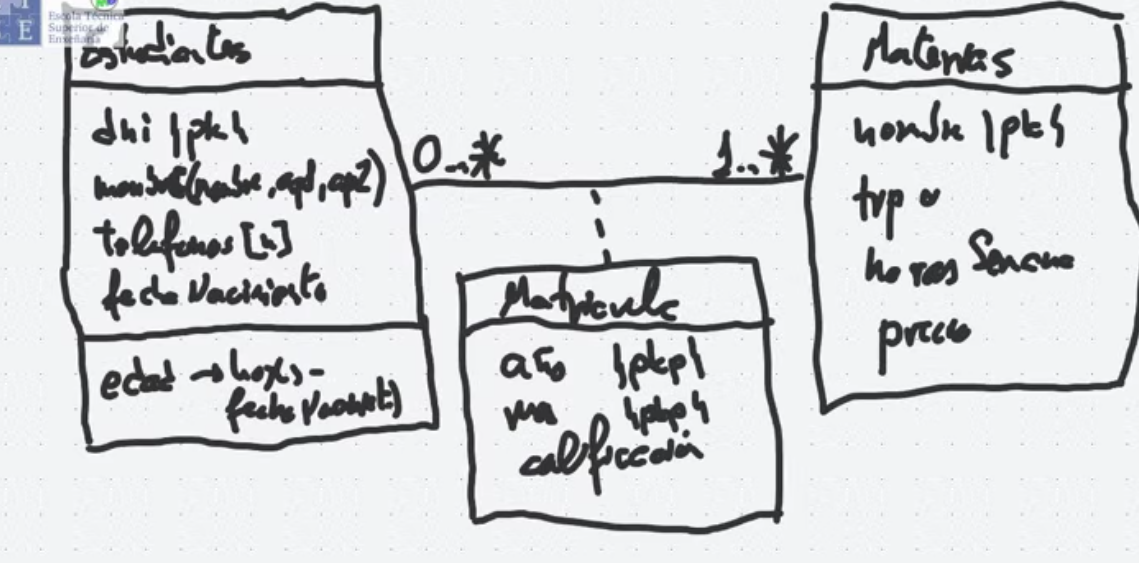 E
Escola Técnica
Superior de
Enxeñaría
Estudiantes
dni {pk}
nombre(nombre, ap1, ap2)
telefonos [n]
fecha Nacimiento
edad → hoy() -
fecha Nacimient)
0..*
1..*
Matricula
año {pkp}
{pkp}
calificación
Materias
nombre {pk}
tipo
horas Semana
precio